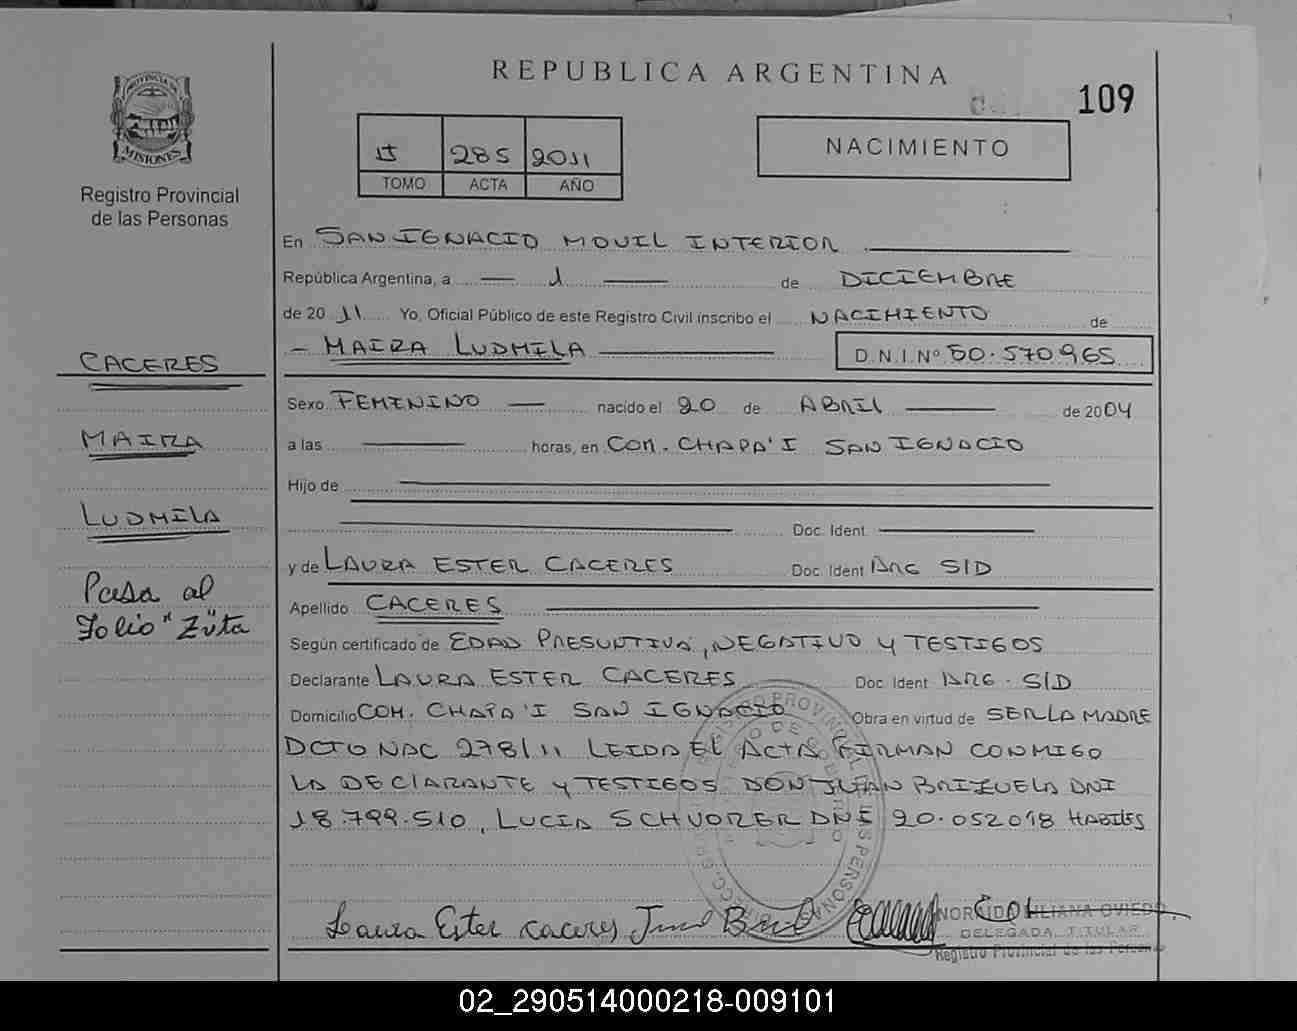 REPUBLICA ARGENTINA
109
PROVINCIA DE
MISIONES
Registro Provincial
de las Personas
II 285 2011
TOMO ACTA AÑO
NACIMIENTO
En SAN IGNACIO MOVIL INTERIOR
República Argentina, a 1 de DICIEMBRE
de 2011 Yo, Oficial Público de este Registro Civil inscribo el NACIMIENTO de
MAIRA LUDMILA D.N.I. Nº 50.570965
CACERES
MAIRA
LUDMILA
Pasa al
Folio "Zúta
Sexo FEMENINO nacido el 20 de ABRIL de 2004
a las horas, en COM. CHAPA'I SAN IGNACIO
Hijo de
Doc. Ident.
y de LAURA ESTER CACERES Doc. Ident ARG S/D
Apellido CACERES
Según certificado de EDAD PRESUNTIVA, NEGATIVO Y TESTIGOS
Declarante LAURA ESTER CACERES Doc. Ident ARG. S/D
Domicilio COM. CHAPA'I SAN IGNACIO Obra en virtud de SER LA MADRE
DCTO NAC 278/11 LEIDA EL ACTA FIRMAN CONMIGO
LA DECLARANTE Y TESTIGOS DON JUAN BRIZUELA DNI
18.799.510, LUCIA SCHVORER DNI 20.052018 HABILES
Laura Ester caceres
LILIANA OVIEDO
DELEGADA TITULAR
Registro Provincial de las Personas
02_290514000218-009101